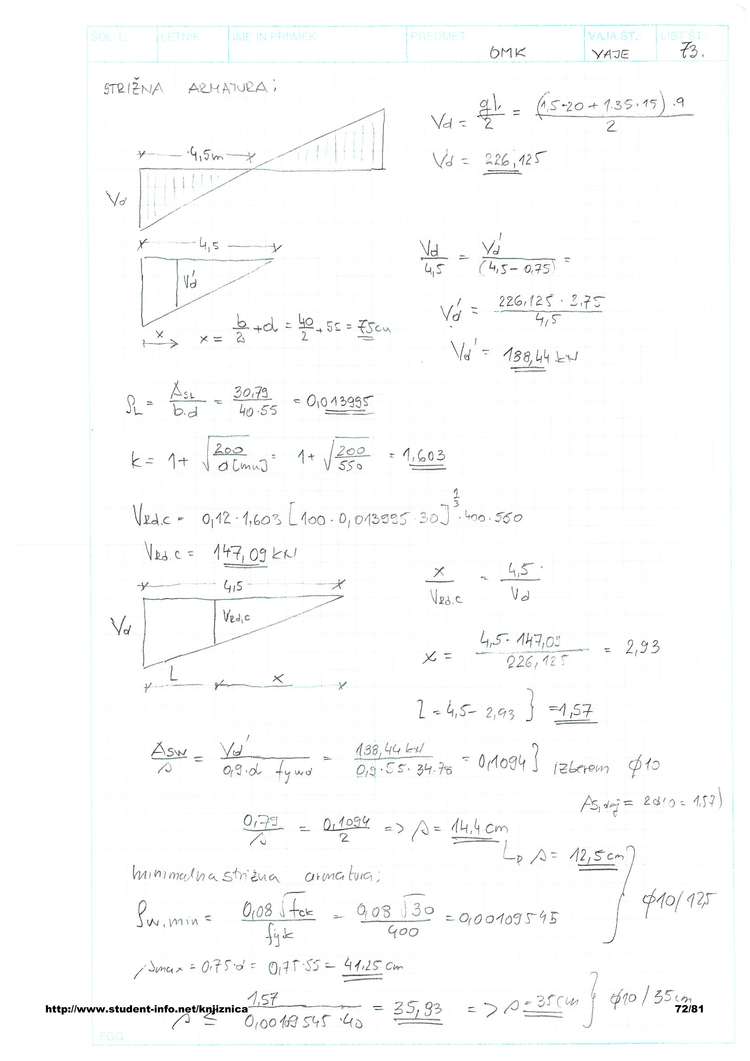 ŠOL. L. LETNIK IME IN PRIIMEK PREDMET VAJA ŠT. LIST ŠT.
OMK VAJE 73.
STRIŽNA ARMATURA:
Vd = ql/2 = (1,5·20 + 1.35·15)·9 / 2
4,5m
Vd' = 226,125
Vd
4,5
Vd/4,5 = Vd'/(4,5-0,75) =
Vd'
Vd' = 226,125 · 3,75 / 4,5
x
x = b/2 + d = 40/2 + 55 = 75cm
Vd' = 188,44 kN
ρL = AsL/b.d = 30,79/40·55 = 0,013995
k = 1 + √200/d[mm] = 1 + √200/550 = 1,603
VRd,c = 0,12·1,603 [100·0,013995·30]^1/3 ·400·550
VRd,c = 147,09 kN
4,5
x/VRd,c = 4,5/Vd
VRd,c
Vd
x = 4,5·147,09 / 226,125 = 2,93
L x
l = 4,5 - 2,93 } = 1,57
Asw/s = Vd'/0,9·d fywd = 188,44 kN/0,9·55·34.78 = 0,1094 } izberem ϕ10
0,79/s = 0,1094/2 => s = 14,4 cm
↳ s = 12,5 cm
minimalna strižna armatura:
ρw,min = 0,08√fck/fyk = 0,08√30/400 = 0,00109545
ϕ10/12,5
smax = 0,75·d = 0,75·55 = 41,25 cm
s ≤ 1,57/0,00109545·40 = 35,93 => s = 35cm } ϕ10/35cm
http://www.student-info.net/knjiznica 72/81